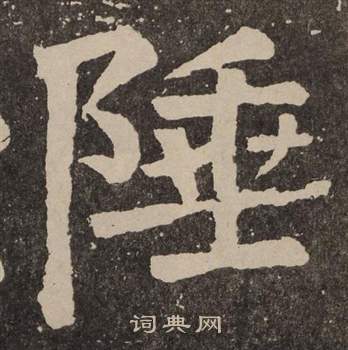 陲
词典网